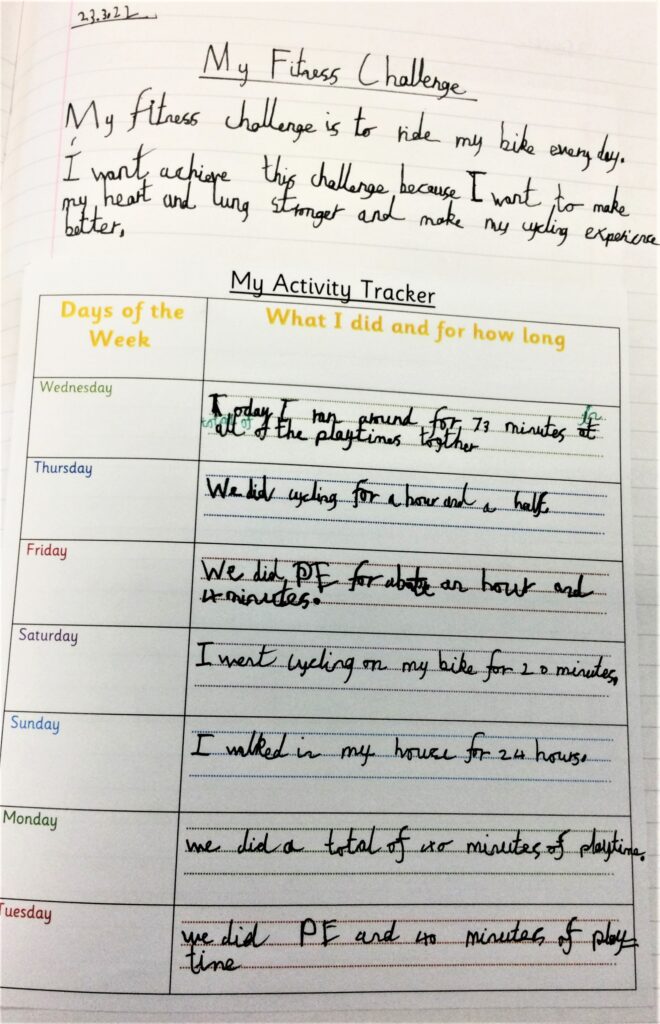 23.3.22
My Fitness Challenge
My fitness challenge is to ride my bike every day.
I want achieve this challenge because I want to make
my heart and lung stronger and make my cycling experience
better.
My Activity Tracker
Days of the
Week
What I did and for how long
Wednesday
Today I ran around for 73 minutes at In
total of
all of the playtimes togther
Thursday
We did cycling for a hour and a half.
Friday
We did, PE for about an hour and
4 minutes.
Saturday
I went cycling on my bike for 20 minutes.
Sunday
I walked in my house for 24 hours.
Monday
we did a total of 40 minutes of playtime.
Tuesday
we did PE and 40 minutes of play
time